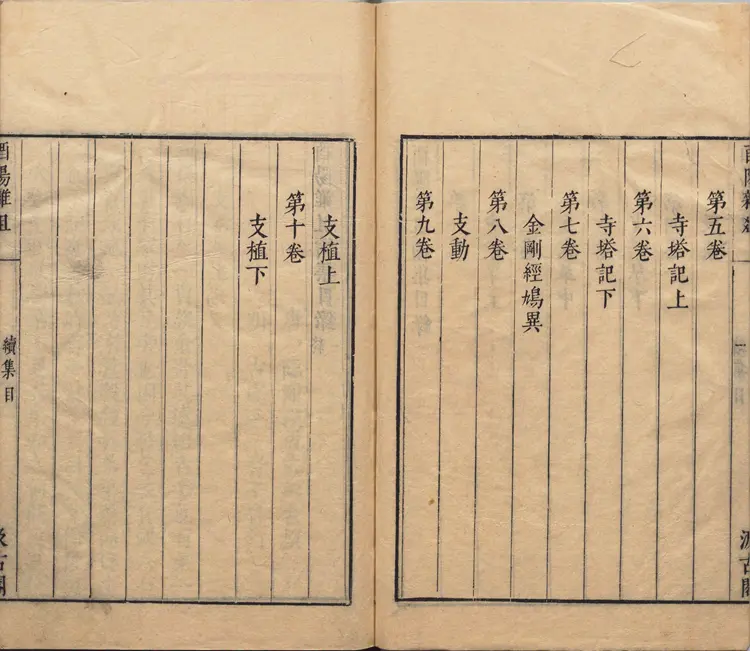 第五卷
寺塔記上
第六卷
寺塔記下
第七卷
金剛經鳩異
第八卷
支動
第九卷
支植上
第十卷
支植下
酉陽雜俎
續集目
汲古閣